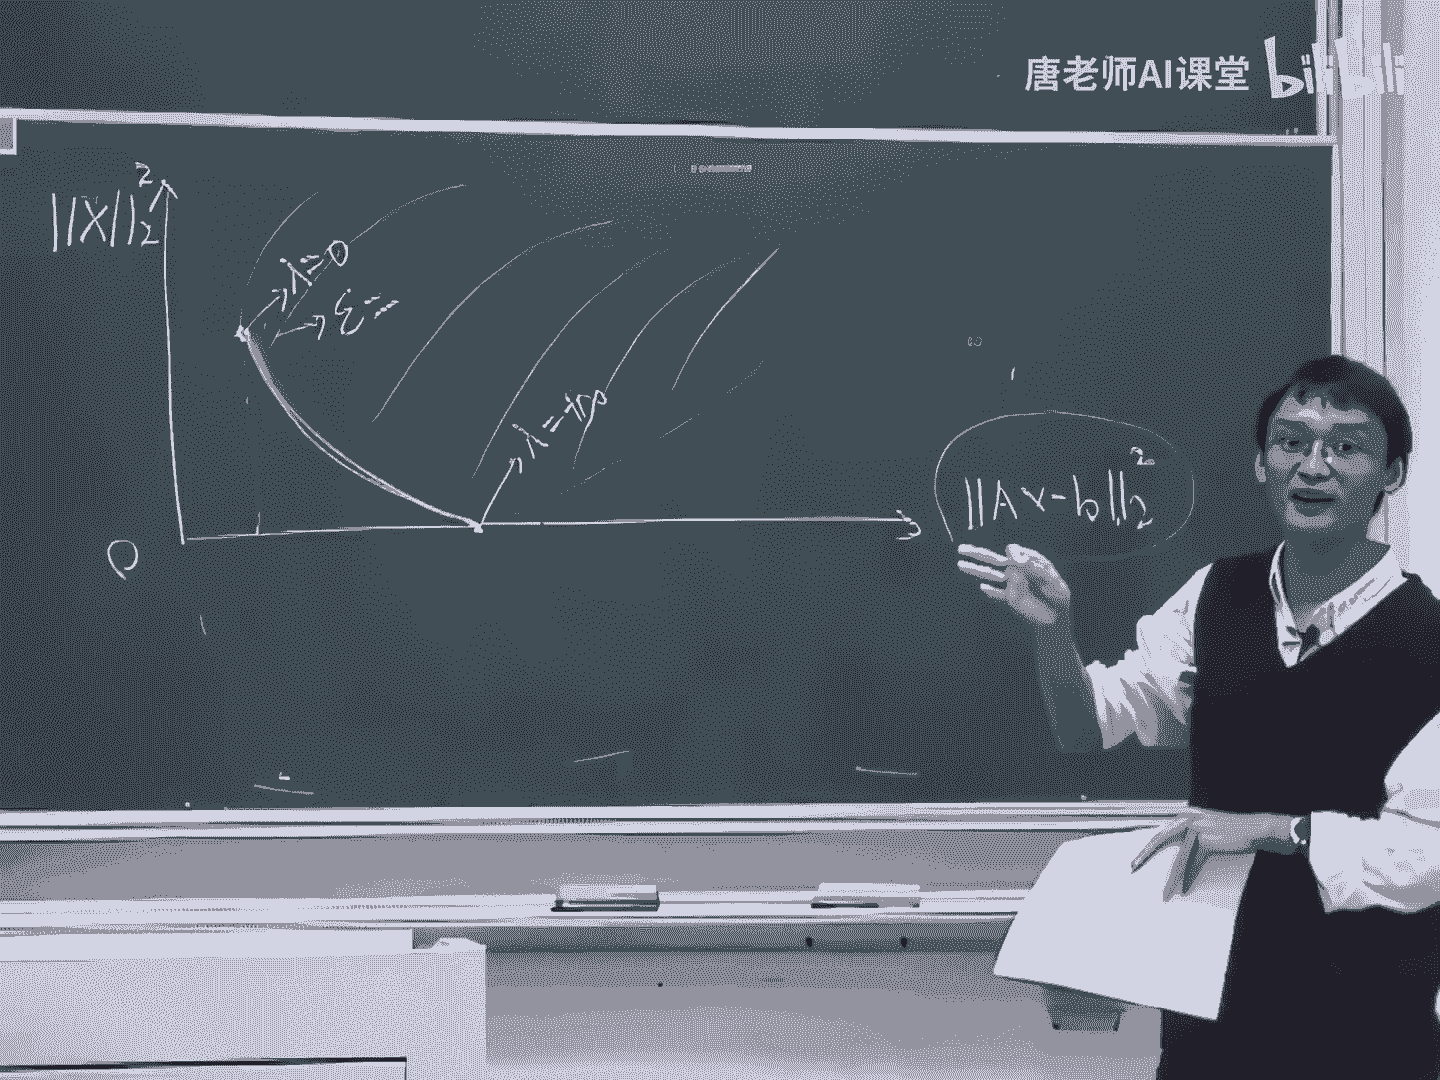 唐老师AI课堂 bilibili
||X||₂²
λ=0
ε=
λ=+∞
||Ax-b||₂²
0